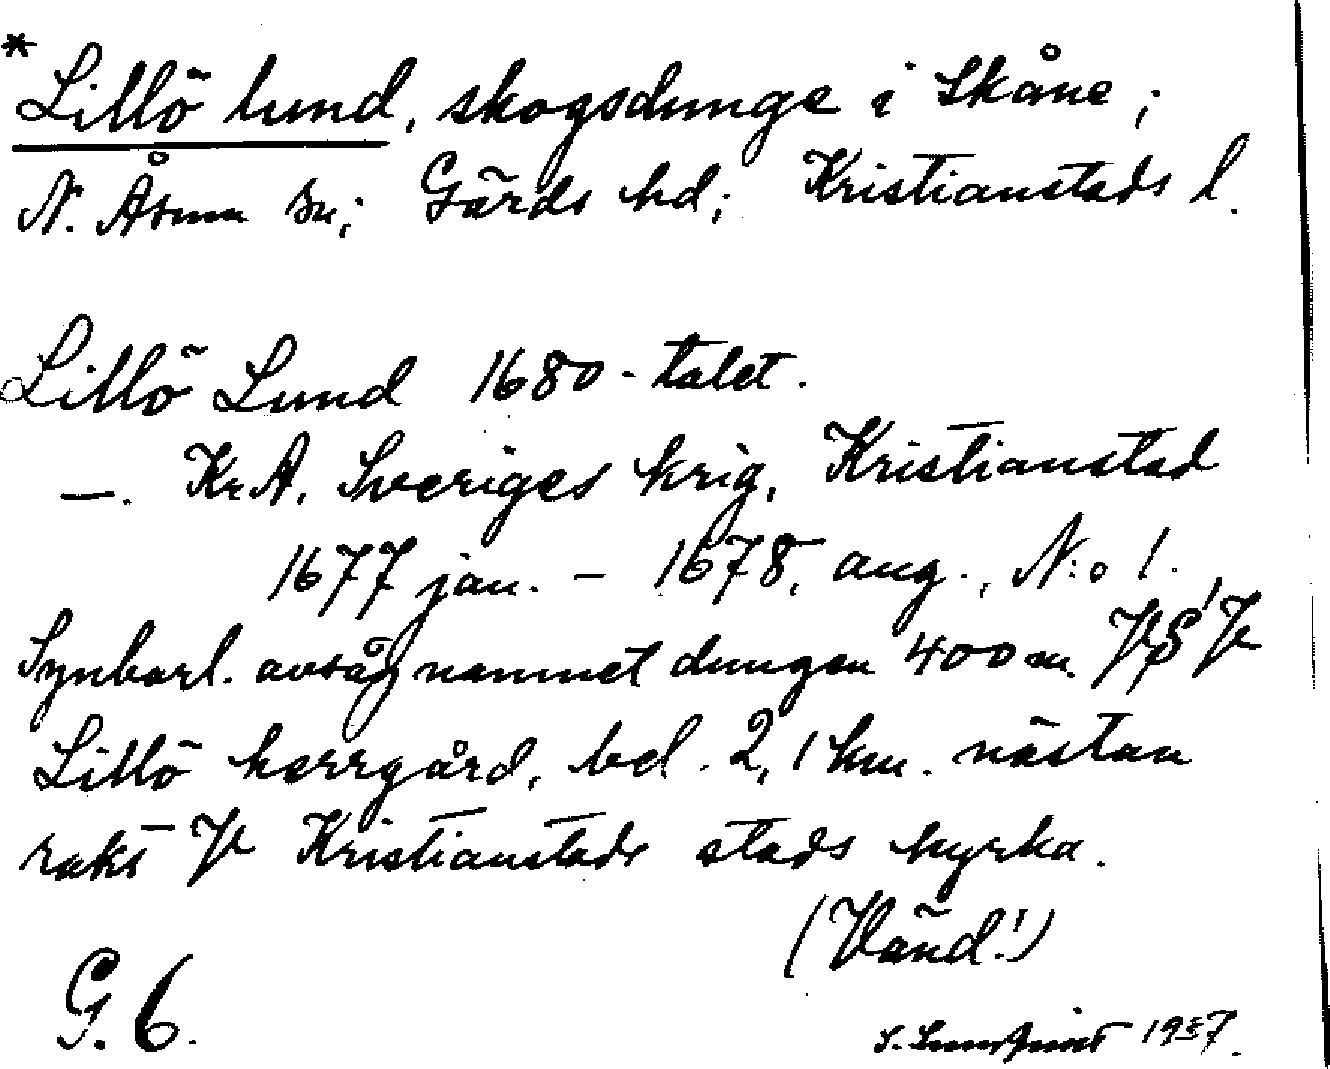 * Lillö lund, skogsdunge i Skåne;
N. Åsum sn; Gärds hd; Kristianstads l.
Lillö Lund 1680-talet.
—. KrA. Sveriges krig, Kristianstad
1677 jan. – 1678, aug., N:o 1.
Synbarl. avsåg namnet dungen 400 m. VSV
Lillö herrgård, bel. 2,1 km. nästan
rakt V Kristianstads stads kyrka.
(Vänd!)
G. 6.
S. 1957.